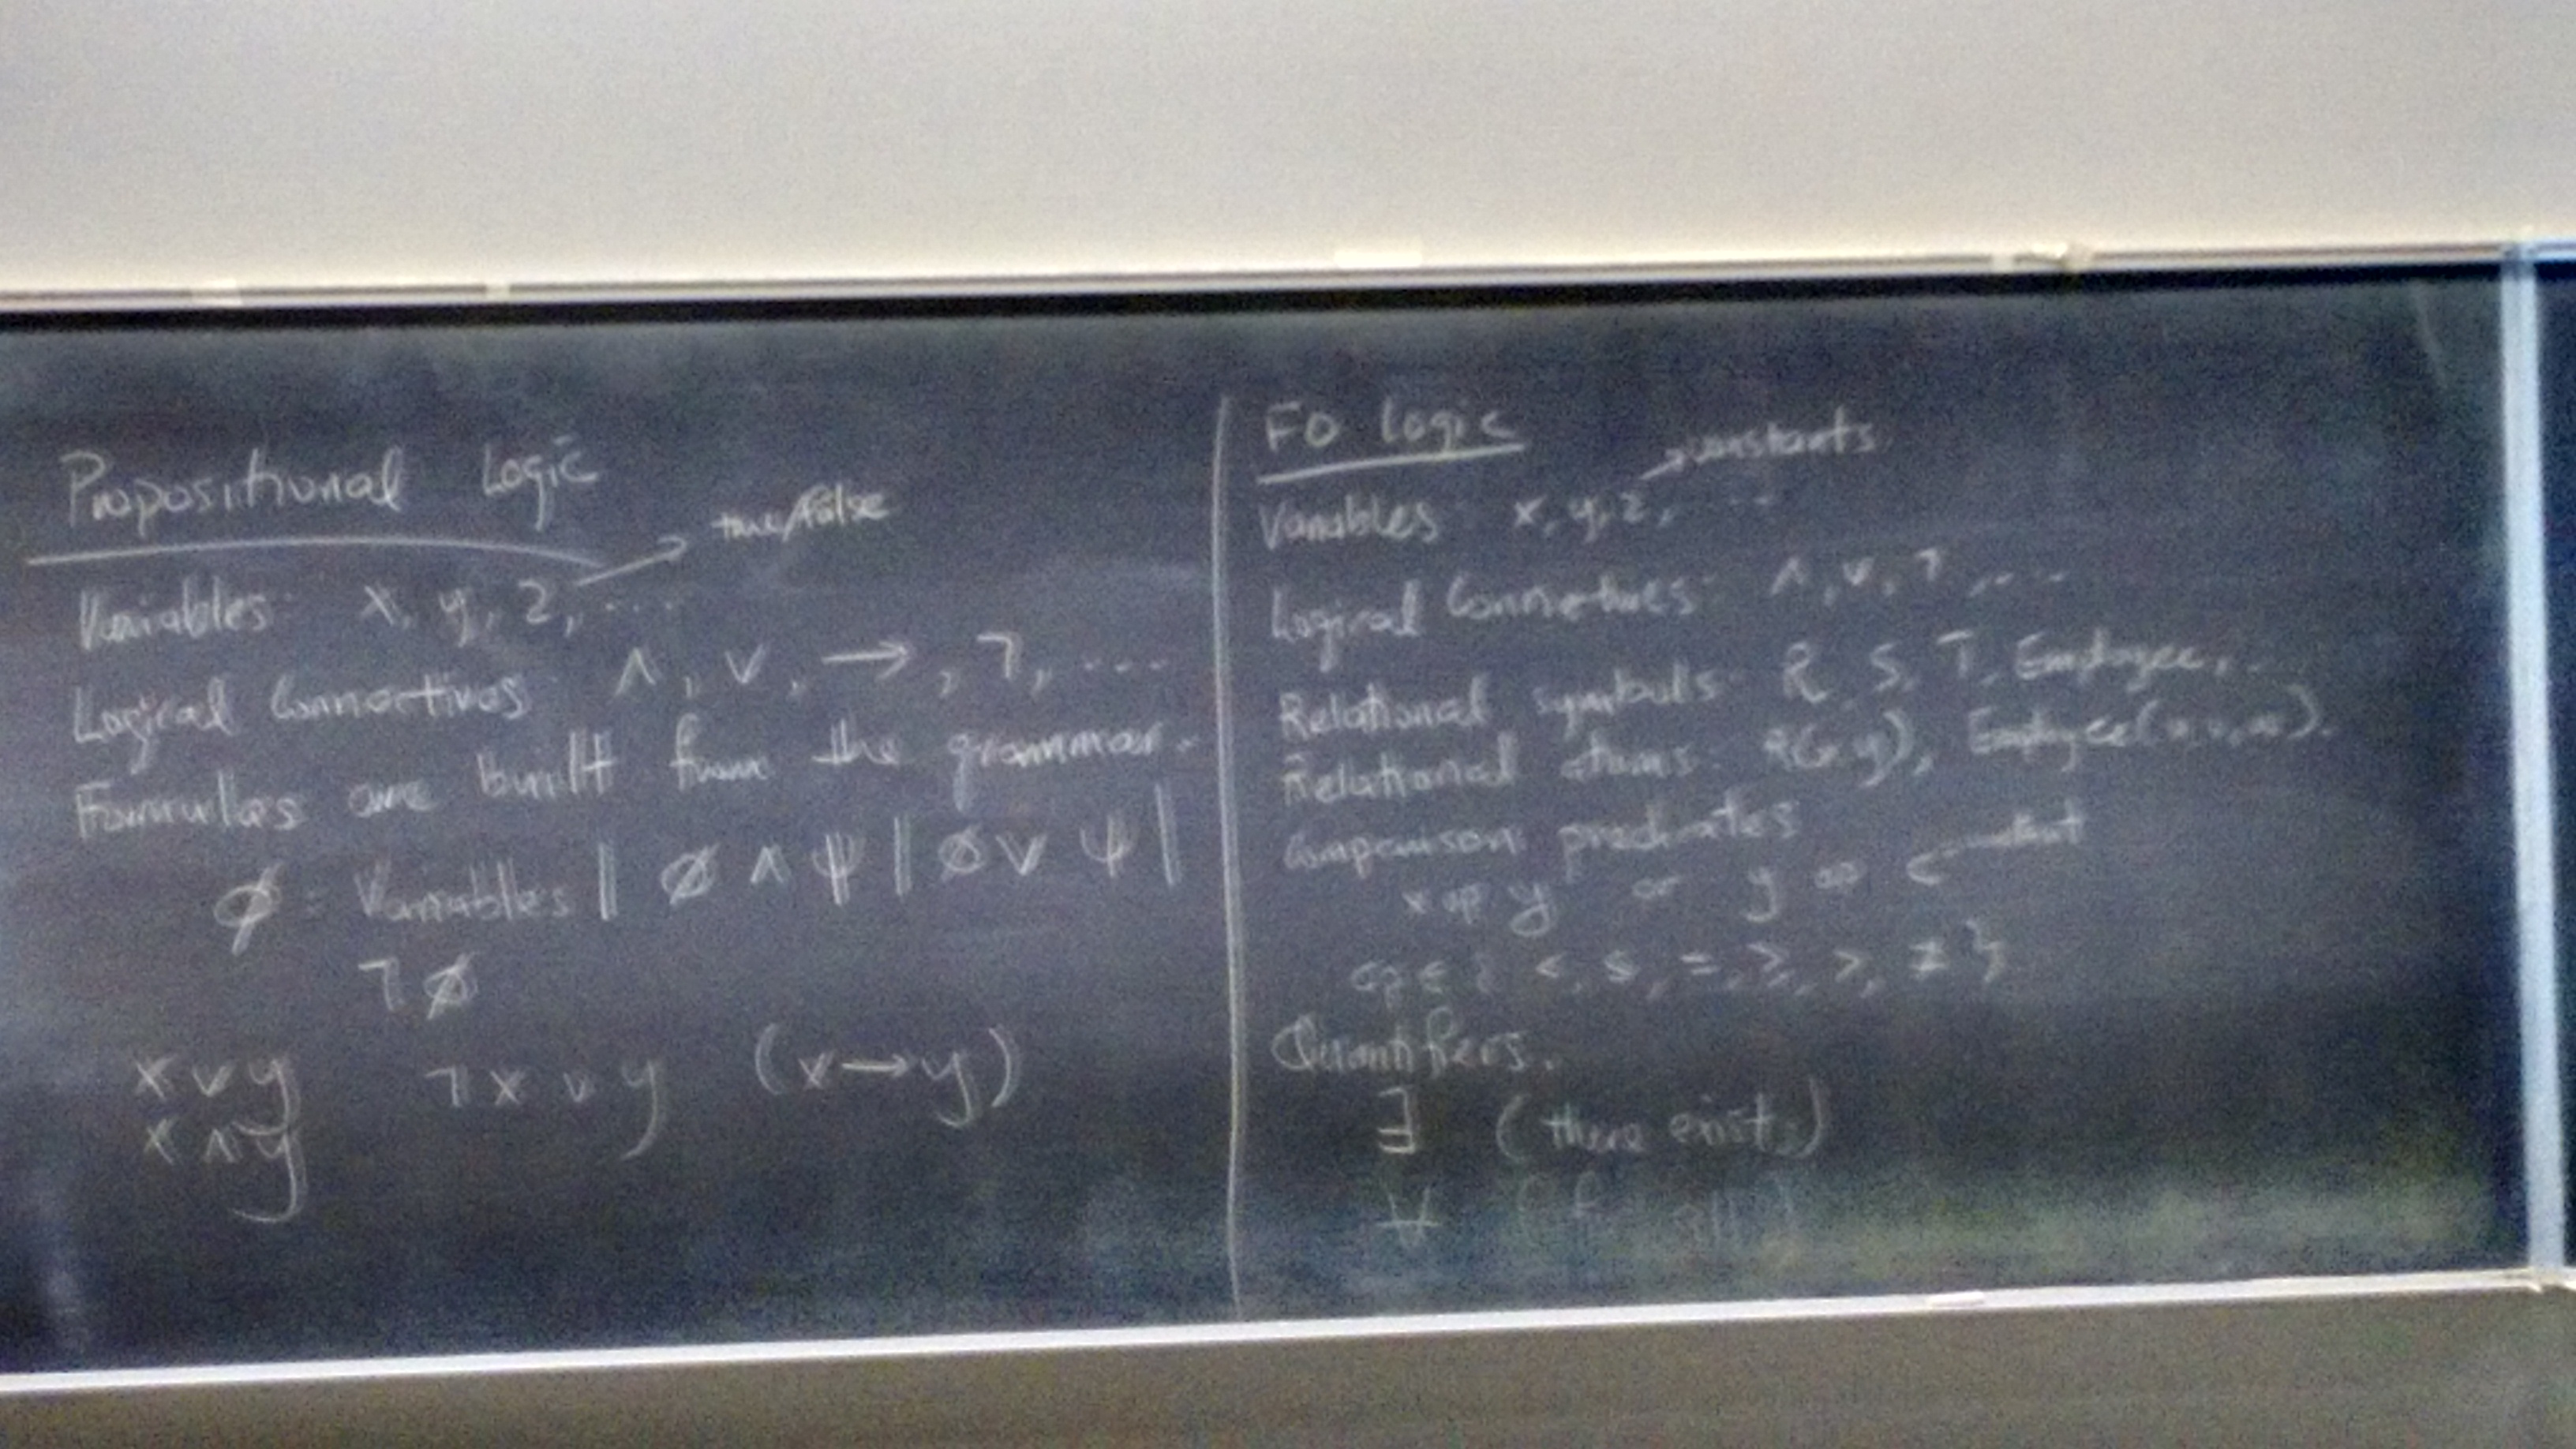 Propositional Logic
true/false
Variables: x, y, z, ....
Logical Connectives: ∧, ∨, →, ¬, ....
Formulas are built from the grammar.
ϕ = Variables | ϕ ∧ ψ | ϕ ∨ ψ |
¬ϕ
x ∨ y ¬x ∨ y (x → y)
x ∧ y
FO Logic
→ constants
Variables x, y, z, ...
Logical Connectives: ∧, ∨, ¬, ....
Relational symbols: R, S, T, Employee, ...
Relational atoms: R(x,y), Employee(
Comparison predicates
x op y or y op c constant
op ∈ { <, ≤, =, ≥, >, ≠ }
Quantifiers.
∃ (there exists)
∀ (for all)